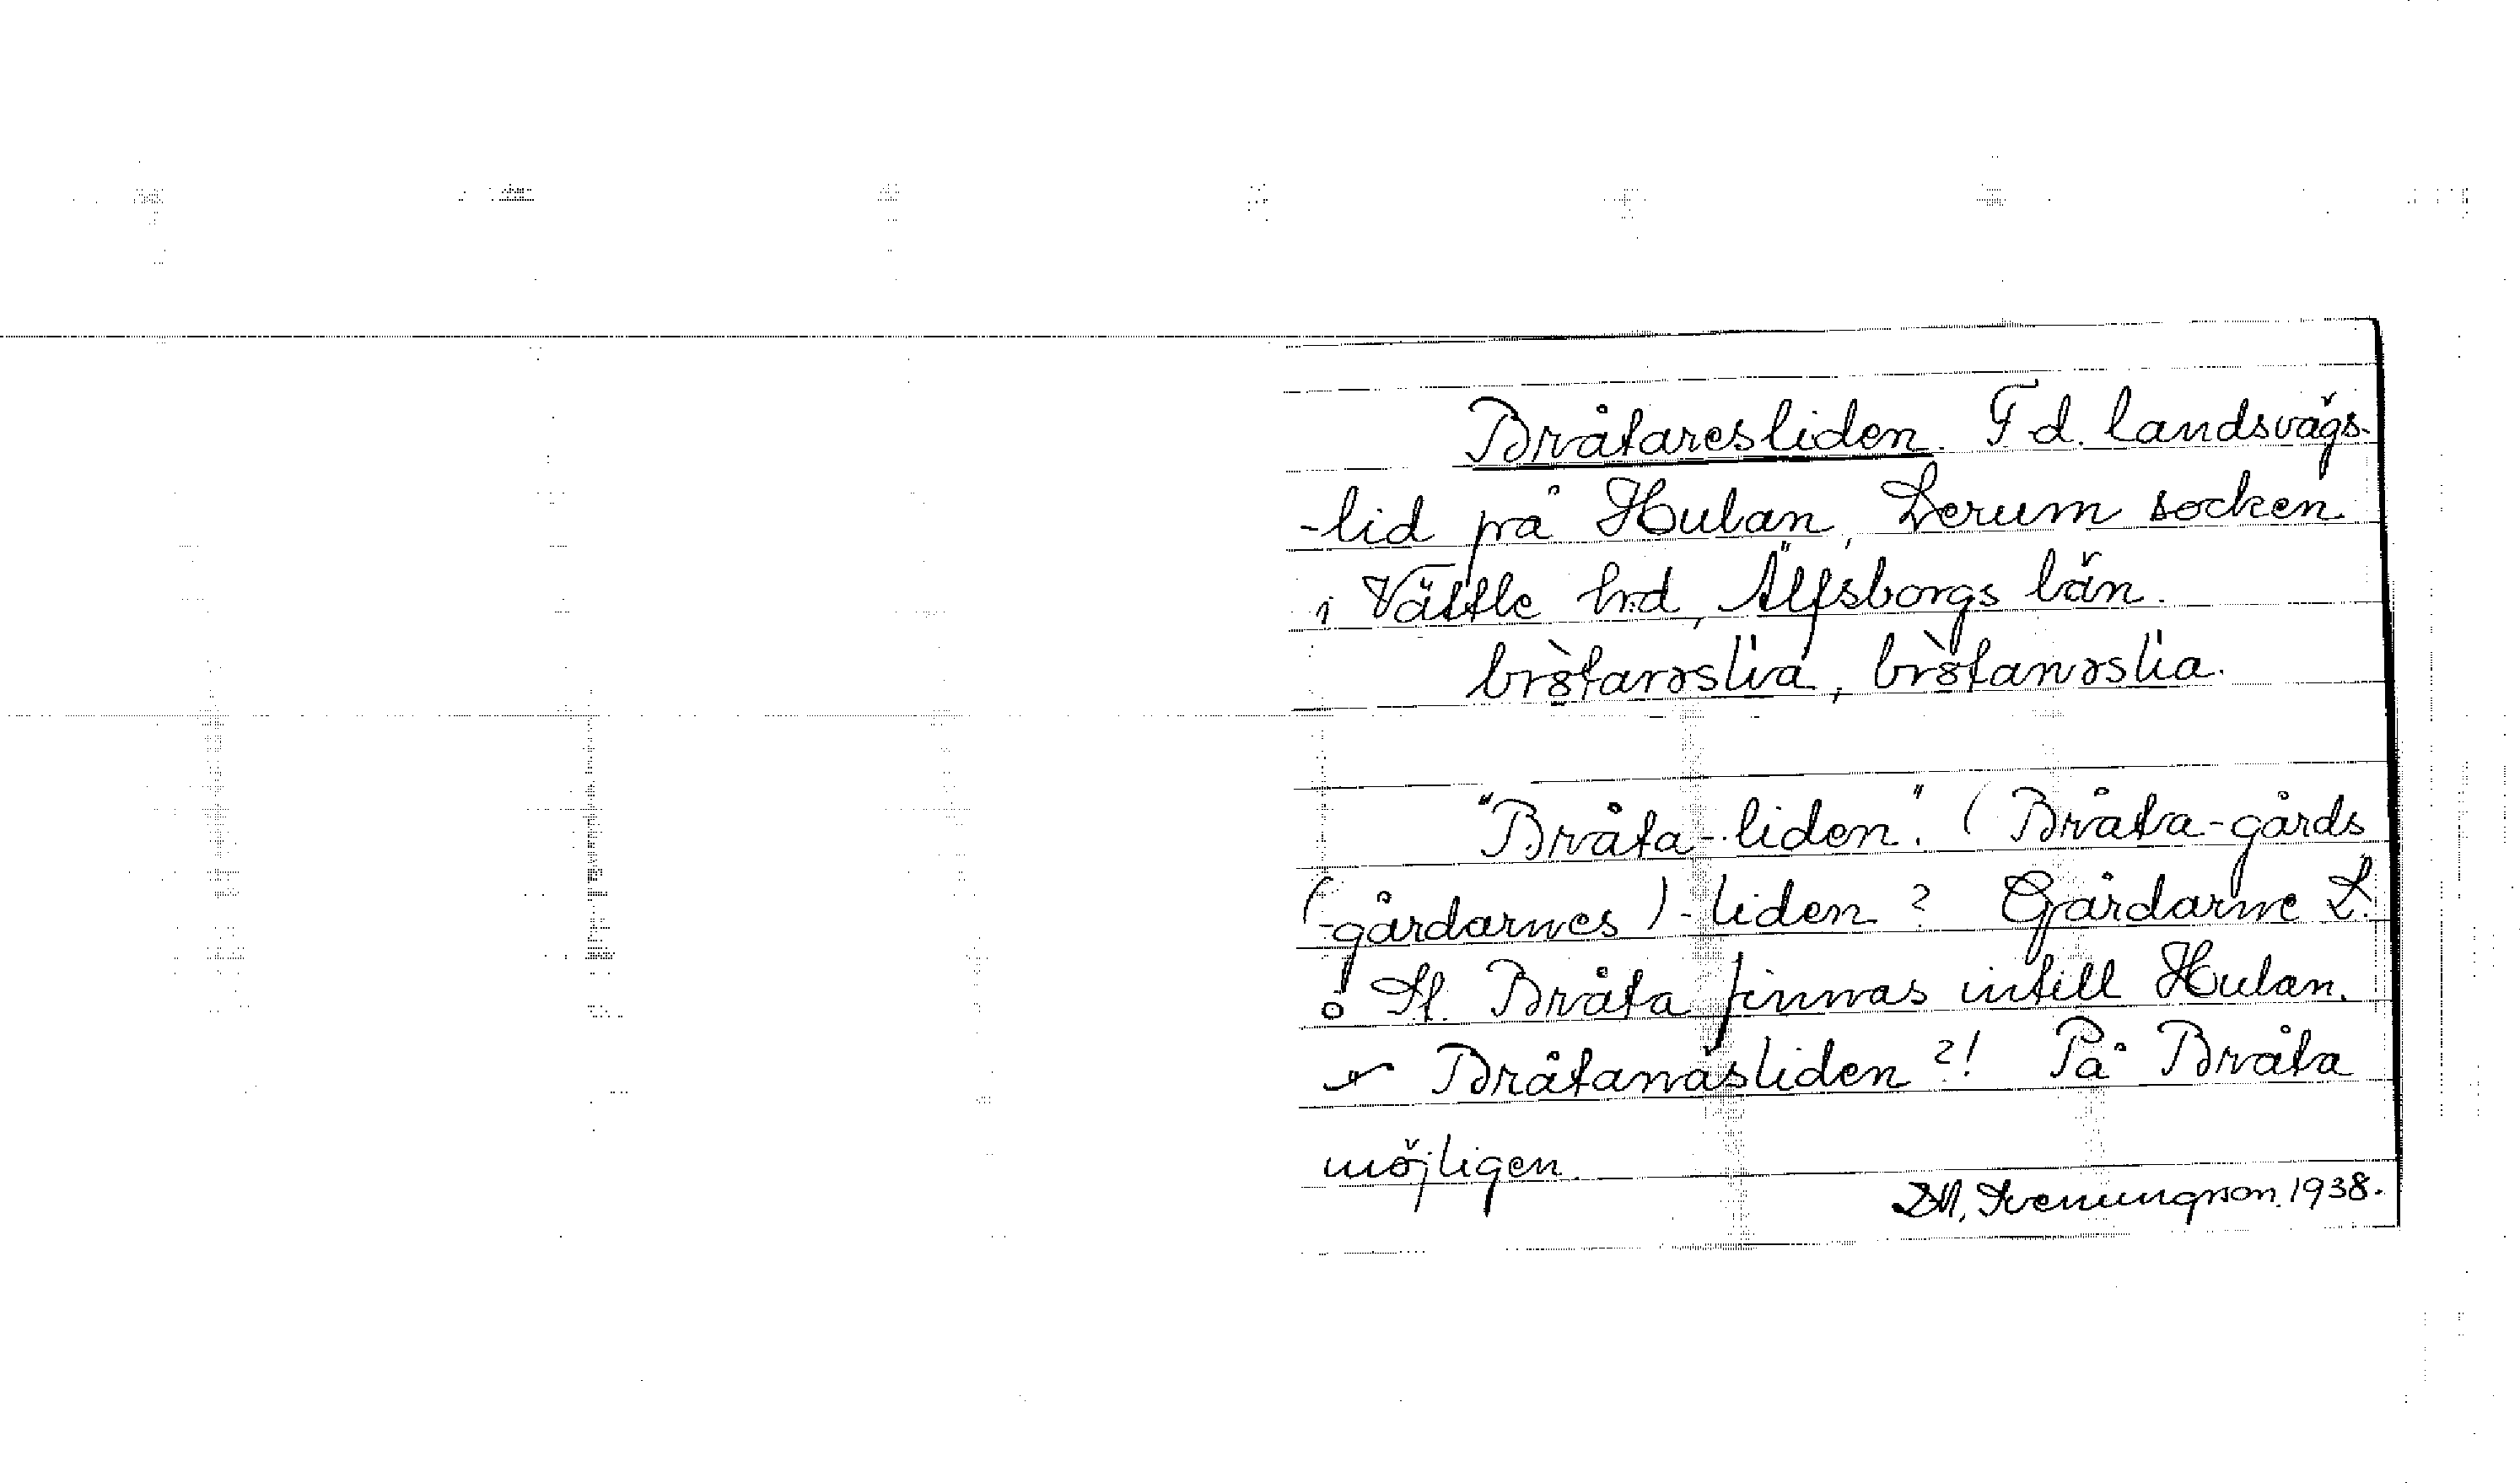 Bråtaresliden. F d. landsvägs-
-lid på Hulan, Lerum socken
i Vättle hd, Älfsborgs län.
"Bråta-liden". (Bråta-gårds
(-gårdarnes)-liden? Gårdarne L.
o St. Bråta finnas intill Hulan.
Bråtanäsliden?! På Bråta
möjligen.
1938.